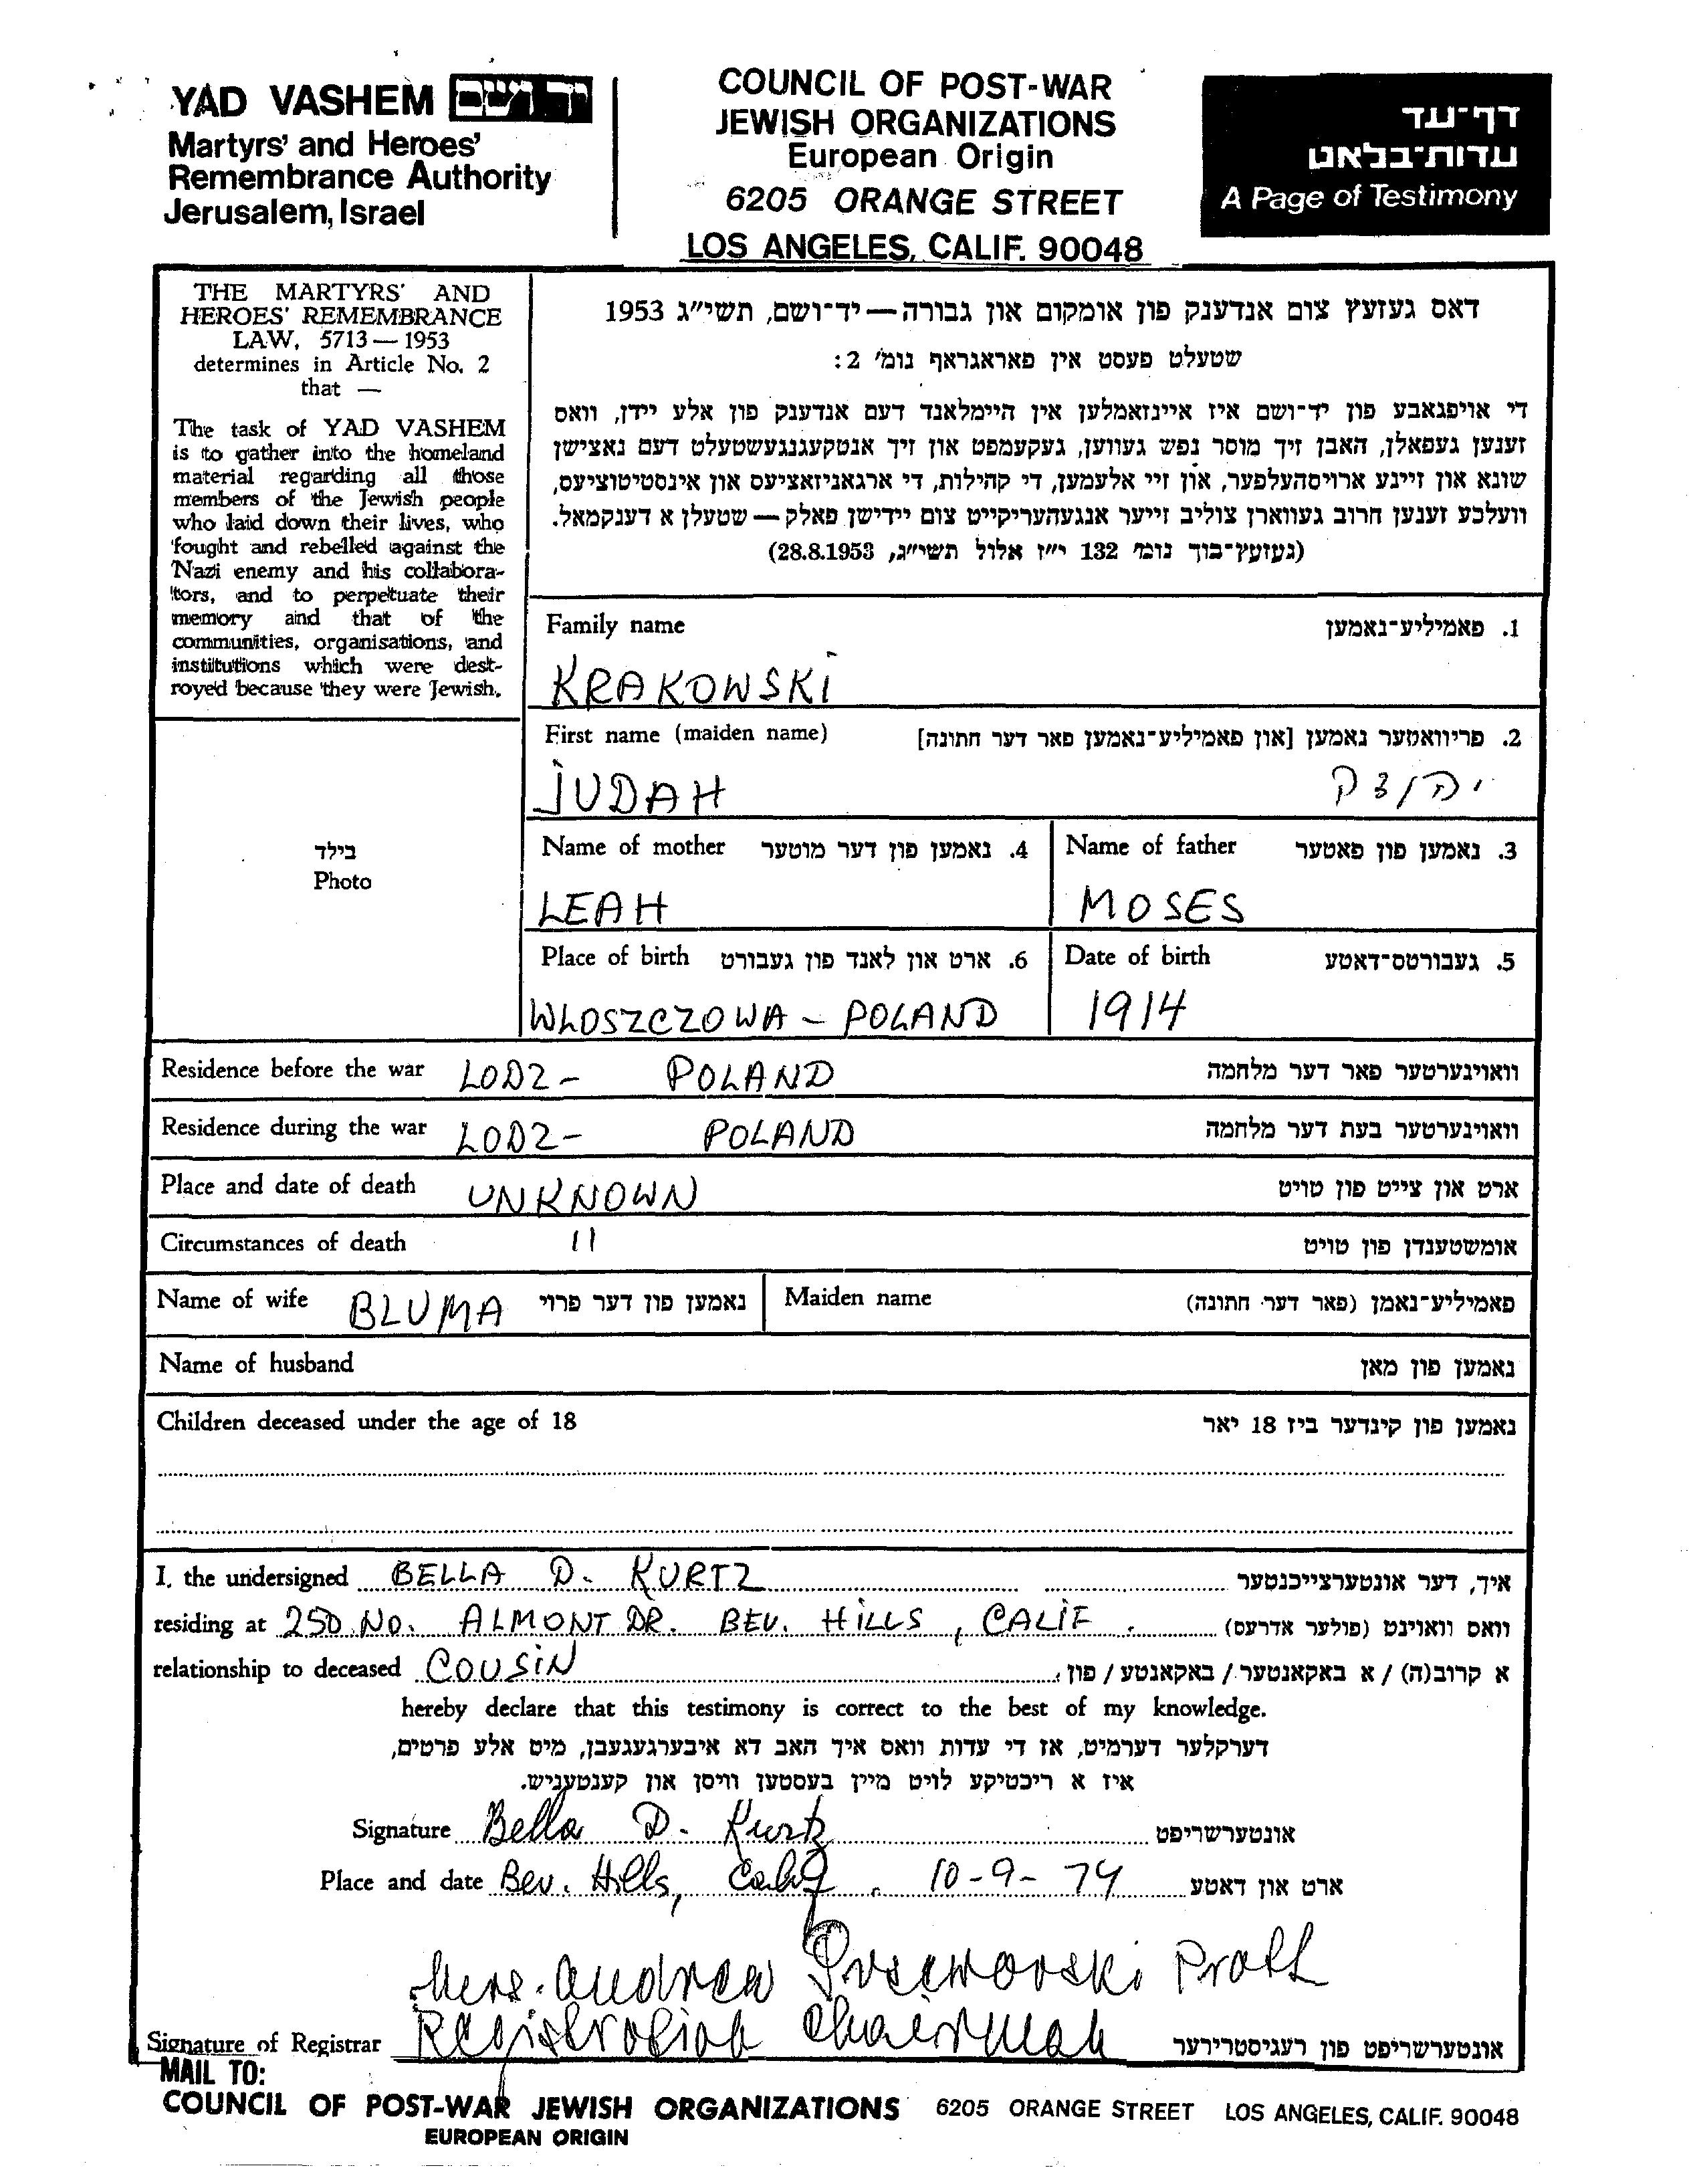 YAD VASHEM יד ושם
Martyrs' and Heroes'
Remembrance Authority
Jerusalem, Israel
COUNCIL OF POST-WAR
JEWISH ORGANIZATIONS
European Origin
6205 ORANGE STREET
LOS ANGELES, CALIF. 90048
דף-עד
עדות-בלאט
A Page of Testimony
THE MARTYRS' AND
HEROES' REMEMBRANCE
LAW, 5713—1953
determines in Article No. 2
that —
The task of YAD VASHEM
is to gather into the homeland
material regarding all those
members of the Jewish people
who laid down their lives, who
fought and rebelled against the
Nazi enemy and his collabora-
tors, and to perpetuate their
memory and that of the
communities, organisations, and
institutions which were dest-
royed because they were Jewish.
דאס געזעץ צום אנדענק פון אומקום און גבורה — יד-ושם, תשי"ג 1953
שטעלט פעסט אין פאראגראף נומ' 2:
די אויפגאבע פון יד-ושם איז איינזאמלען אין היימלאנד דעם אנדענק פון אלע יידן, וואס
זענען געפאלן, האבן זיך מוסר נפש געווען, געקעמפט און זיך אנטקעגנגעשטעלט דעם נאצישן
שונא און זיינע ארויסהעלפער, און זיי אלעמען, די קהילות, די ארגאניזאציעס און אינסטיטוציעס,
וועלכע זענען חרוב געווארן צוליב זייער אנגעהעריקייט צום יידישן פאלק — שטעלן א דענקמאל.
(געזעץ-בוך נומ' 132 י"ז אלול תשי"ג, 28.8.1953)
Family name 1. פאמיליע-נאמען
KRAKOWSKI
First name (maiden name) 2. פריוואטער נאמען [און פאמיליע-נאמען פאר דער חתונה]
JUDAH
בילד
Photo
Name of mother 4. נאמען פון דער מוטער Name of father 3. נאמען פון פאטער
LEAH MOSES
Place of birth 6. ארט און לאנד פון געבורט Date of birth 5. געבורטס-דאטע
WLOSZCZOWA - POLAND 1914
Residence before the war LODZ - POLAND וואוינערטער פאר דער מלחמה
Residence during the war LODZ - POLAND וואוינערטער בעת דער מלחמה
Place and date of death UNKNOWN ארט און צייט פון טויט
Circumstances of death 11 אומשטענדן פון טויט
Name of wife BLUMA נאמען פון דער פרוי Maiden name פאמיליע-נאמן (פאר דער חתונה)
Name of husband נאמען פון מאן
Children deceased under the age of 18 נאמען פון קינדער ביז 18 יאר
I, the undersigned BELLA D. KURTZ איך, דער אונטערצייכנטער
residing at 250 NO. ALMONT DR. BEV. HILLS, CALIF. וואס וואוינט (פולער אדרעס)
relationship to deceased COUSIN א קרוב(ה) / א באקאנטער / באקאנטע / פון
hereby declare that this testimony is correct to the best of my knowledge.
דערקלער דערמיט, אז די עדות וואס איך האב דא איבערגעגעבן, מיט אלע פרטים,
איז א ריכטיקע לויט מיין בעסטען וויסן און קענטעניש.
Signature Bella D. Kurtz אונטערשריפט
Place and date Bev. Hills, Calif. 10-9-74 ארט און דאטע
Mrs. Andrea
Signature of Registrar Registration Chairman אונטערשריפט פון רעגיסטרירער
MAIL TO:
COUNCIL OF POST-WAR JEWISH ORGANIZATIONS 6205 ORANGE STREET LOS ANGELES, CALIF. 90048
EUROPEAN ORIGIN